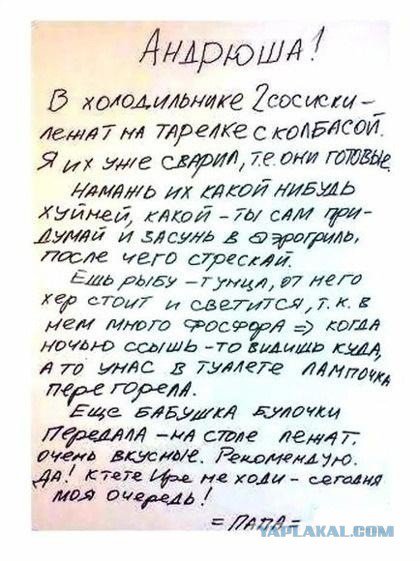 Андрюша!
В холодильнике 2 сосиски –
лежат на тарелке с колбасой.
Я их уже сварил, т.е. они готовые.
Намажь их какой нибудь
хуйней, какой – ты сам при-
думай и засунь в аэрогриль,
после чего стрескай.
Ешь рыбу – тунца, от него
хер стоит и светится, т.к. в
нем много фосфора => когда
ночью ссышь – то видишь куда,
а то у нас в туалете лампочка
перегорела.
Еще бабушка булочки
передала – на столе лежат.
очень вкусные. Рекомендую.
Да! К тете Ире не ходи – сегодня
моя очередь!
= ПАПА =
YAPLAKAL.COM